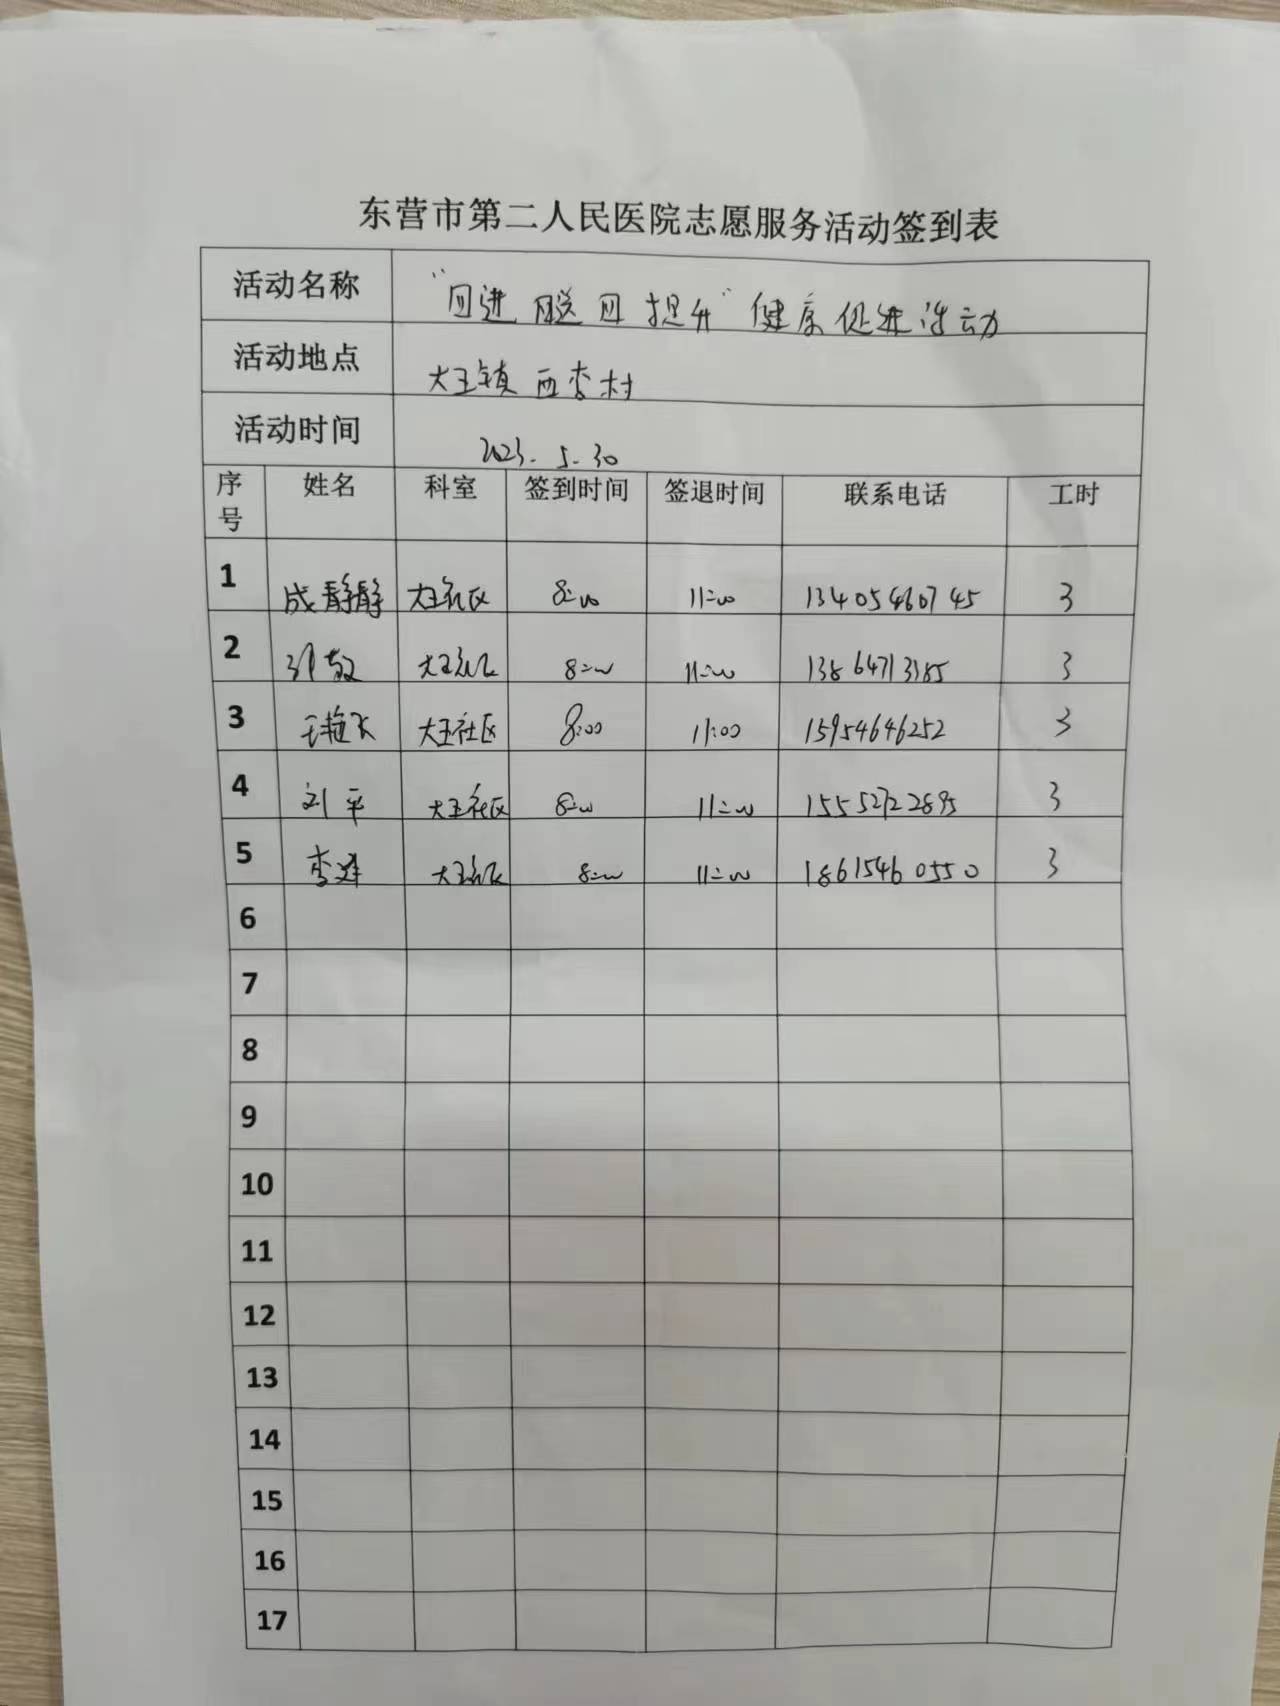 东营市第二人民医院志愿服务活动签到表
活动名称 "四进 四送 四提升" 健康促进活动
活动地点 大王镇 西李村
活动时间 2023.5.30
序号 姓名 科室 签到时间 签退时间 联系电话 工时
1 成静静 大王社区 8:00 11:00 13405460745 3
2 大王社区 8:00 11:00 13864713185 3
3 王艳飞 大王社区 8:00 11:00 15954646252 3
4 刘平 大王社区 8:00 11:00 15552722895 3
5 李 大王社区 8:00 11:00 18615460550 3
6
7
8
9
10
11
12
13
14
15
16
17